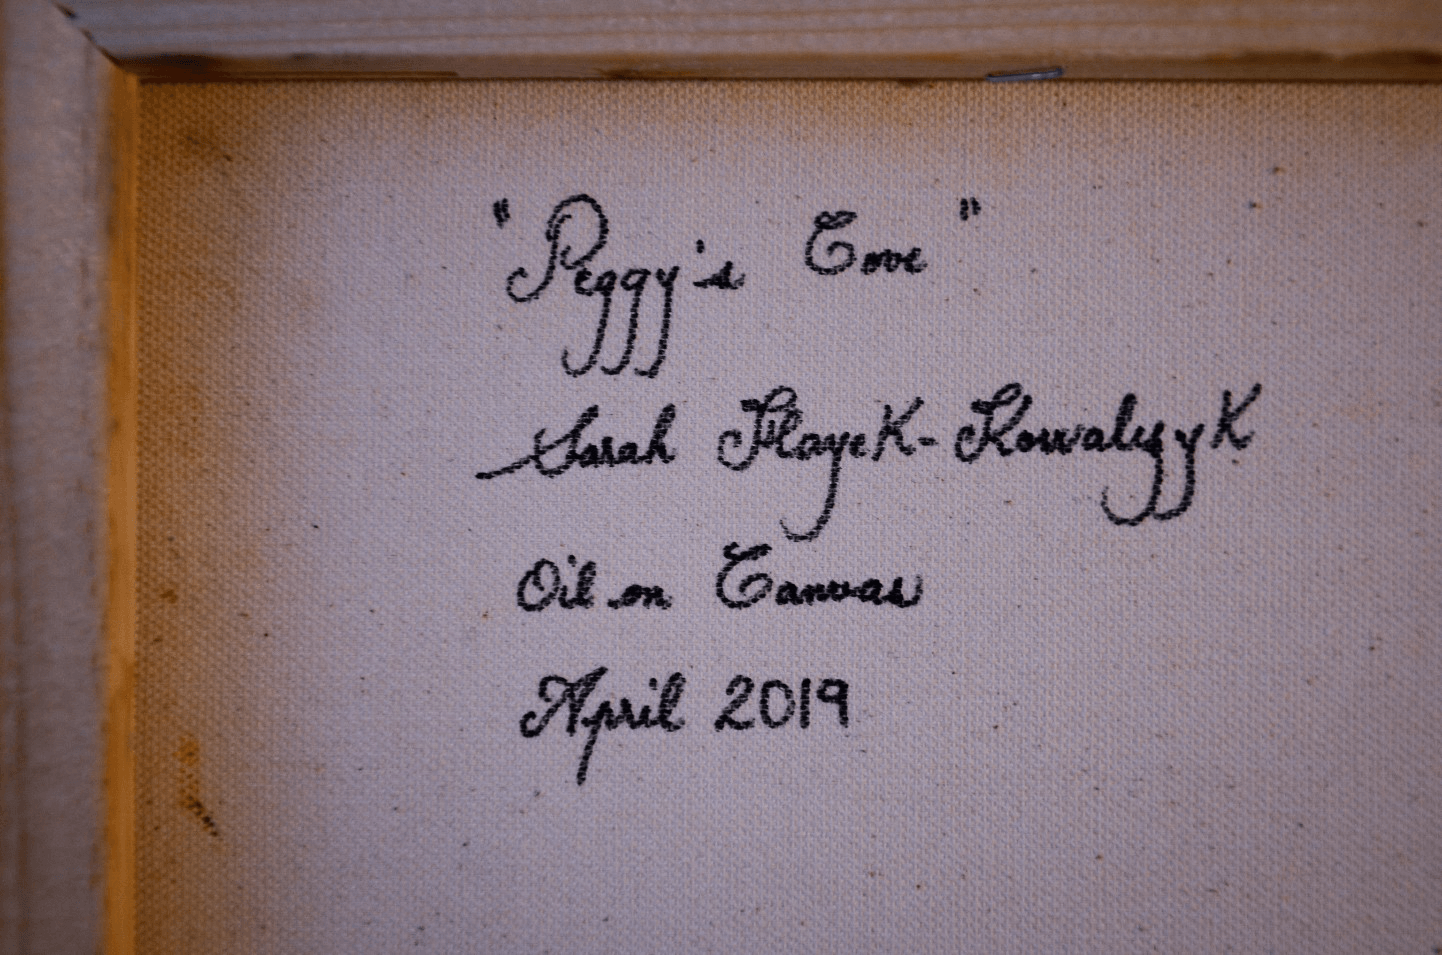 "Peggy's Cove"
Sarah Hayek-Kowalczyk
Oil on Canvas
April 2019